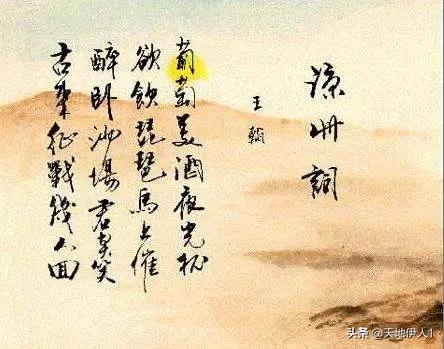 凉州詞
王翰
葡萄美酒夜光杯
欲飲琵琶馬上催
醉卧沙場君莫笑
古来征戰幾人回
头条 @天地伊人1